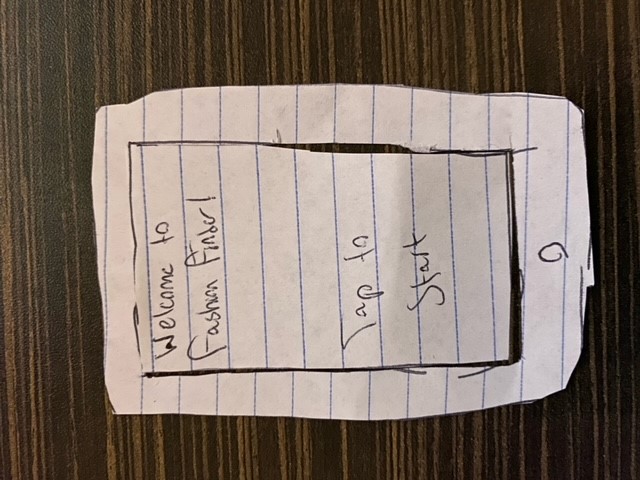 Welcome to
Fashion Finder!
Tap to
Start